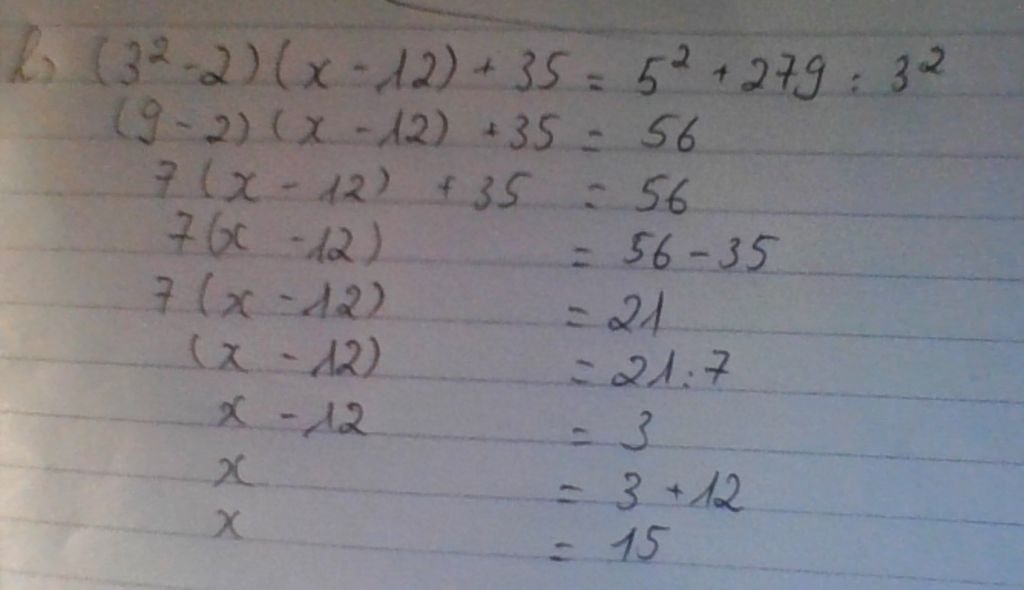 b, (3² - 2)(x - 12) + 35 = 5² + 279 : 3²
(9 - 2)(x - 12) + 35 = 56
7(x - 12) + 35 = 56
7(x - 12) = 56 - 35
7(x - 12) = 21
(x - 12) = 21 : 7
x - 12 = 3
x = 3 + 12
x = 15